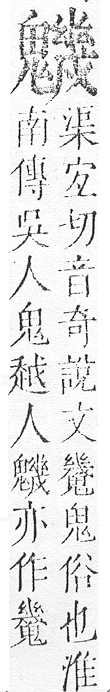 魕
渠宐切音奇說文鬼俗也淮
南傳吳人鬼越人魕亦作